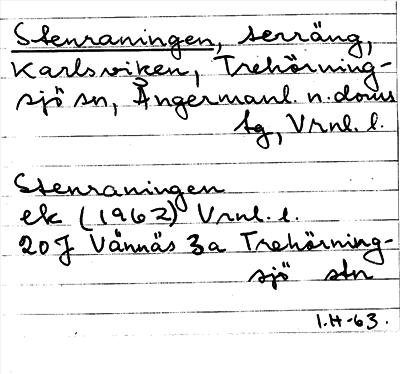 Stenraningen, terräng,
Karlsviken, Trehörning-
sjö sn, Ångermanl. n. doms
tg, Vrnl. l.
Stenraningen
ek (1962) Vrnl. l.
20J Vännäs 3a Trehörning-
sjö stn
I.H-63.